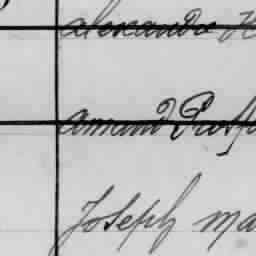 alexandre H
amand Prosp
Joseph ma